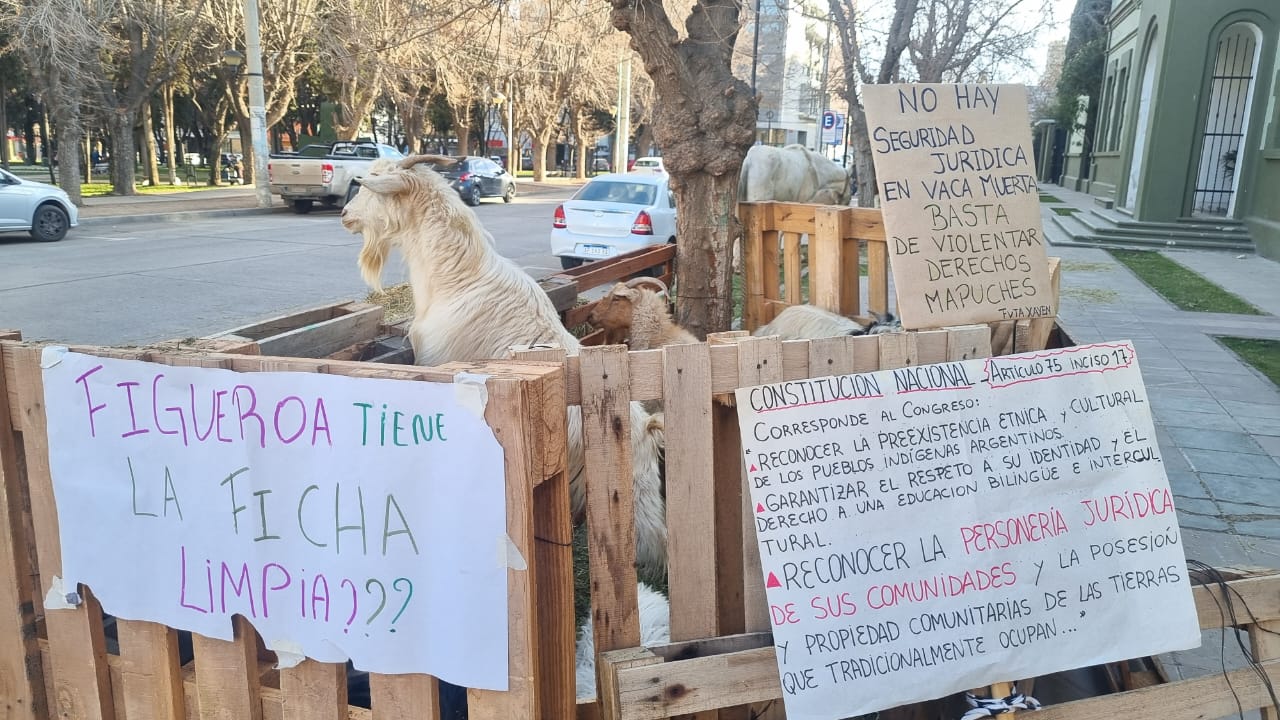 FIGUEROA TIENE
LA FICHA
LIMPIA???
NO HAY
SEGURIDAD
JURIDICA
EN VACA MUERTA
BASTA
DE VIOLENTAR
DERECHOS
MAPUCHES
FVTA XAYEN
CONSTITUCION NACIONAL - ARTÍCULO 75 INCISO 17
CORRESPONDE AL CONGRESO:
"RECONOCER LA PREEXISTENCIA ETNICA Y CULTURAL
DE LOS PUEBLOS INDÍGENAS ARGENTINOS.
GARANTIZAR EL RESPETO A SU IDENTIDAD Y EL
DERECHO A UNA EDUCACIÓN BILINGÜE E INTERCUL
TURAL.
RECONOCER LA PERSONERÍA JURÍDICA
DE SUS COMUNIDADES Y LA POSESIOÑ
Y PROPIEDAD COMUNITARIAS DE LAS TIERRAS
QUE TRADICIONALMENTE OCUPAN..."
E